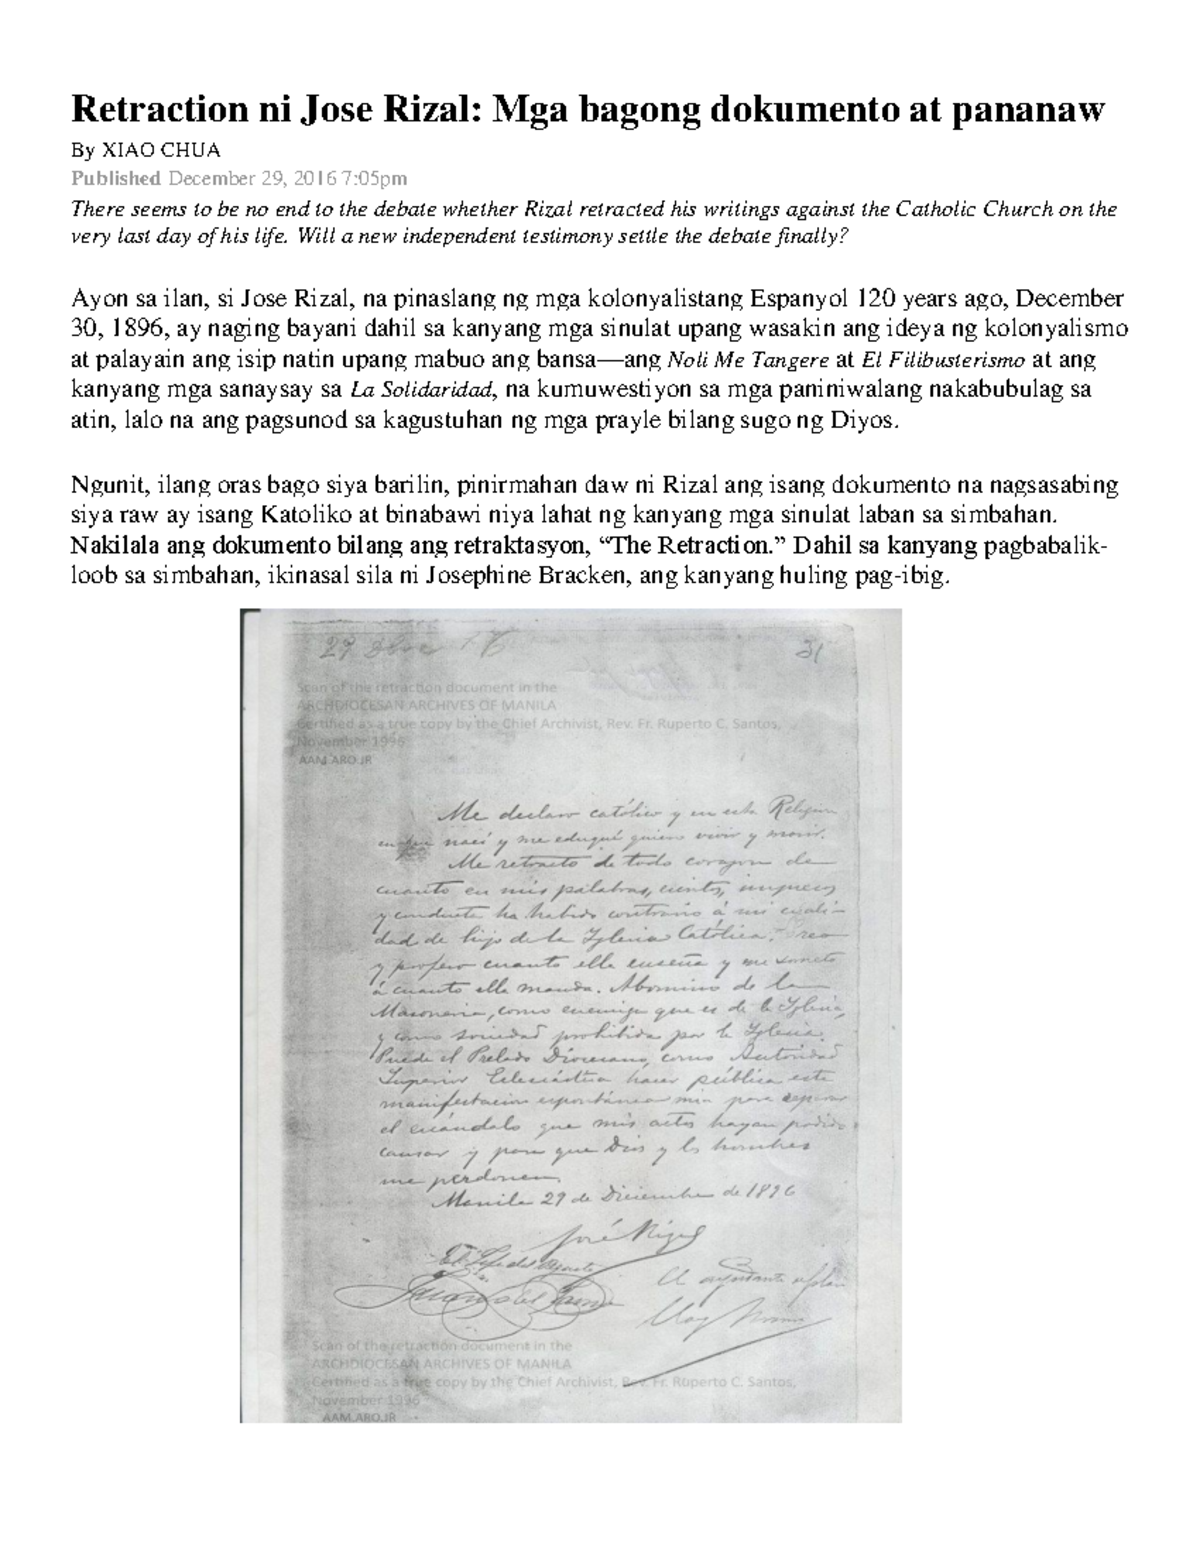 Retraction ni Jose Rizal: Mga bagong dokumento at pananaw
By XIAO CHUA
Published December 29, 2016 7:05pm
There seems to be no end to the debate whether Rizal retracted his writings against the Catholic Church on the
very last day of his life. Will a new independent testimony settle the debate finally?
Ayon sa ilan, si Jose Rizal, na pinaslang ng mga kolonyalistang Espanyol 120 years ago, December
30, 1896, ay naging bayani dahil sa kanyang mga sinulat upang wasakin ang ideya ng kolonyalismo
at palayain ang isip natin upang mabuo ang bansa—ang Noli Me Tangere at El Filibusterismo at ang
kanyang mga sanaysay sa La Solidaridad, na kumuwestiyon sa mga paniniwalang nakabubulag sa
atin, lalo na ang pagsunod sa kagustuhan ng mga prayle bilang sugo ng Diyos.
Ngunit, ilang oras bago siya barilin, pinirmahan daw ni Rizal ang isang dokumento na nagsasabing
siya raw ay isang Katoliko at binabawi niya lahat ng kanyang mga sinulat laban sa simbahan.
Nakilala ang dokumento bilang ang retraktasyon, “The Retraction.” Dahil sa kanyang pagbabalik-
loob sa simbahan, ikinasal sila ni Josephine Bracken, ang kanyang huling pag-ibig.
31
Scan of the retraction document in the
ARCHDIOCESAN ARCHIVES OF MANILA
Certified as a true copy by the Chief Archivist, Rev. Fr. Ruperto C. Santos,
November 1996
AAM.ARO.JR
Me declaro católico y en esta Religion
naci y me eduqué quiero vivir y morir.
Me retracto de todo corazon de
cuanto en mis palabras, escritos, impresos
y conducta ha habido contrario á mi cuali-
dad de hijo de la Iglesia Católica. Creo
y profeso cuanto ella enseña y me someto
á cuanto ella manda. Abomino de la
Masoneria, como enemiga que es de la Iglesia,
y como sociedad prohibida por la Iglesia.
Puede el Prelado Diocesano, como Autoridad
Superior Eclesiástica hacer pública esta
manifestacion espontánea mia para reparar
el escándalo que mis actos hayan podido
causar y para que Dios y los hombres
me perdonen.
Manila 29 de Diciembre de 1896
José Rizal
El Jefe del Piquete
Juan del Fresno
El ayudante de plaza
Eloy Moure
Scan of the retraction document in the
ARCHDIOCESAN ARCHIVES OF MANILA
Certified as a true copy by the Chief Archivist, Rev. Fr. Ruperto C. Santos,
November 1996
AAM.ARO.JR